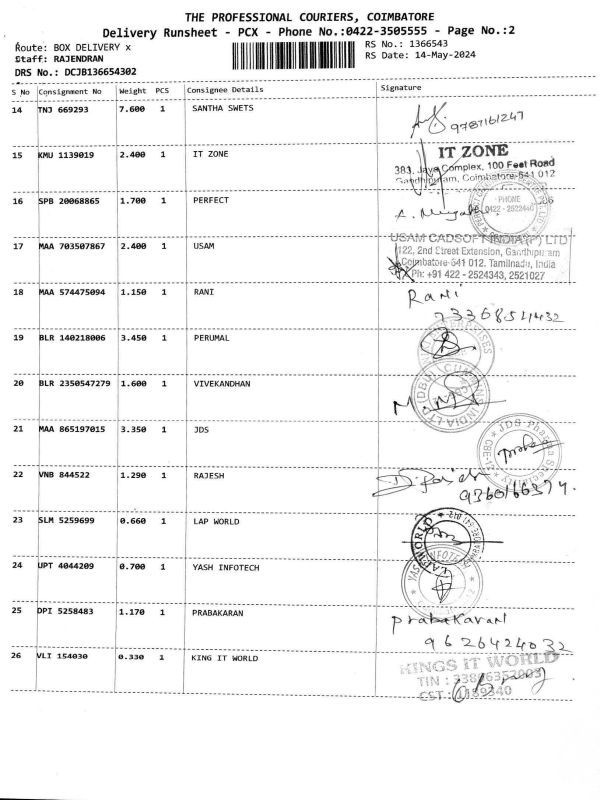 THE PROFESSIONAL COURIERS, COIMBATORE
Delivery Runsheet - PCX - Phone No.:0422-3505555 - Page No.:2
Route: BOX DELIVERY x
Staff: RAJENDRAN
DRS No.: DCJB136654302
RS No.: 1366543
RS Date: 14-May-2024
S No Consignment No Weight PCS Consignee Details Signature
14 TNJ 669293 7.600 1 SANTHA SWETS
9787161247
15 KMU 1139019 2.400 1 IT ZONE
IT ZONE
383, Jaya Complex, 100 Feet Road
Gandhipuram, Coimbatore-641 012
16 SPB 20068865 1.700 1 PERFECT
PHONE
0422 - 2522440
17 MAA 703507867 2.400 1 USAM
USAM CADSOFT INDIA (P) LTD
122, 2nd Street Extension, Gandhipuram
Coimbatore-641 012. Tamilnadu, India
Ph: +91 422 - 2524343, 2521027
18 MAA 574475094 1.150 1 RANI
Rani
19 BLR 140218006 3.450 1 PERUMAL
20 BLR 2350547279 1.600 1 VIVEKANDHAN
21 MAA 865197015 3.350 1 JDS
JDS Pharma Speciality
22 VNB 844522 1.290 1 RAJESH
23 SLM 5259699 0.660 1 LAP WORLD
LAP WORLD
24 UPT 4044209 0.700 1 YASH INFOTECH
25 DPI 5258483 1.170 1 PRABAKARAN
Prabakaran
9626424032
26 VLI 154030 0.330 1 KING IT WORLD
KINGS IT WORLD
TIN : 33886352003
CST : 1159340